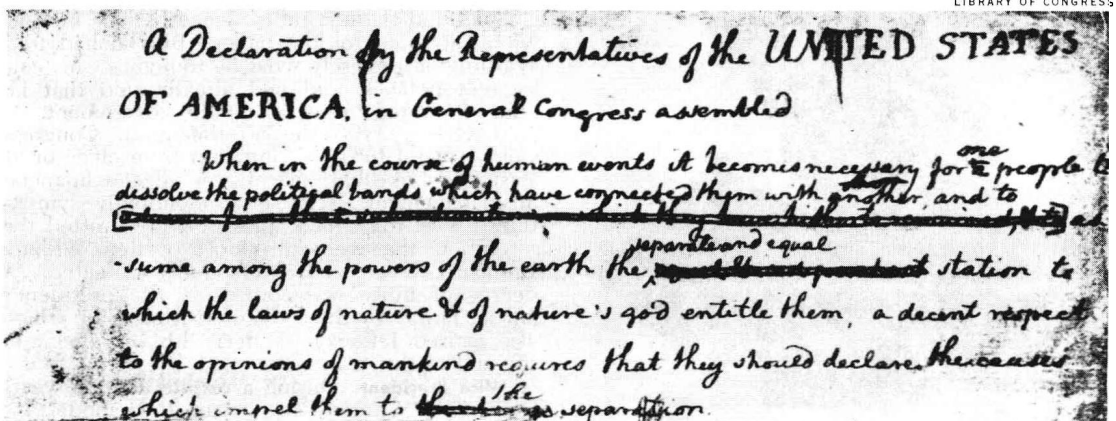 LIBRARY OF CONGRESS
A Declaration by the Representatives of the UNITED STATES
OF AMERICA, in General Congress assembled.
When in the course of human events it becomes necessary for one people to
dissolve the political bands which have connected them with another, and to
as
separate and equal
-sume among the powers of the earth the station to
which the laws of nature & of nature's god entitle them, a decent respect
to the opinions of mankind requires that they should declare the causes
which impel them to the separation.